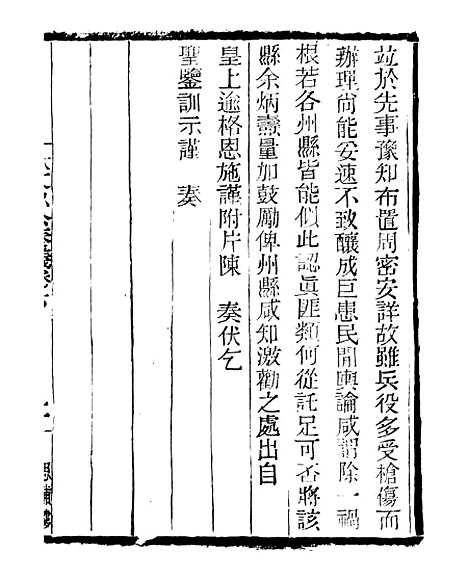 竝於先事豫知布置周密安詳故雖兵役多受槍傷而
辦理尚能妥速不致釀成巨患民閒輿論咸謂除一禍
根若各州縣皆能似此認眞匪類何從託足可否將該
縣余炳燾量加鼓勵俾州縣咸知激勸之處出自
皇上逾格恩施謹附片陳　奏伏乞
聖鑒訓示謹　奏